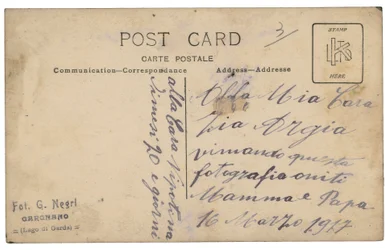 POST CARD
CARTE POSTALE
Communication—Correspondance
Address—Adresse
STAMP
HERE
alla Cara Nipotina
di mesi 20 e giorni
Alla Mia Cara
Zia Argia
questa
fotografia uniti
Mamma e Papa
16 Marzo 19
Fot. G. Negri
GARGNANO
(Lago di Garda)